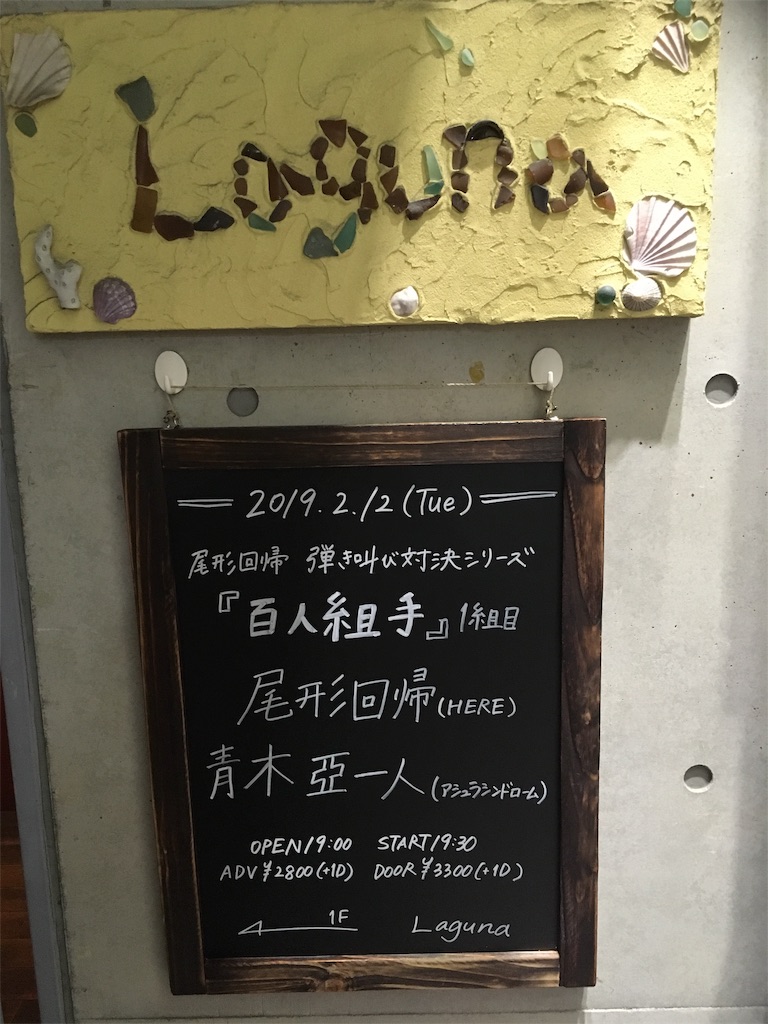 Laguna
2019.2.12(Tue)
尾形回帰 弾き叫び対決シリーズ
『百人組手』1組目
尾形回帰(HERE)
青木亞一人(アシュラシンドローム)
OPEN19:00 START19:30
ADV¥2800(+1D) DOOR¥3300(+1D)
1F Laguna